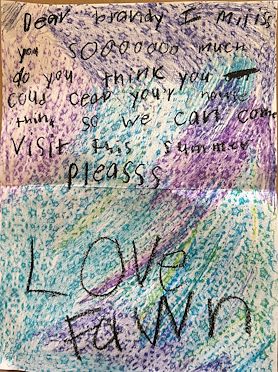 Dear brandy I miiss
you SOOOOOOO much
do you think you
coud cear your house
thing so we can come
visit this summer
pleasss
LOve
FAWn